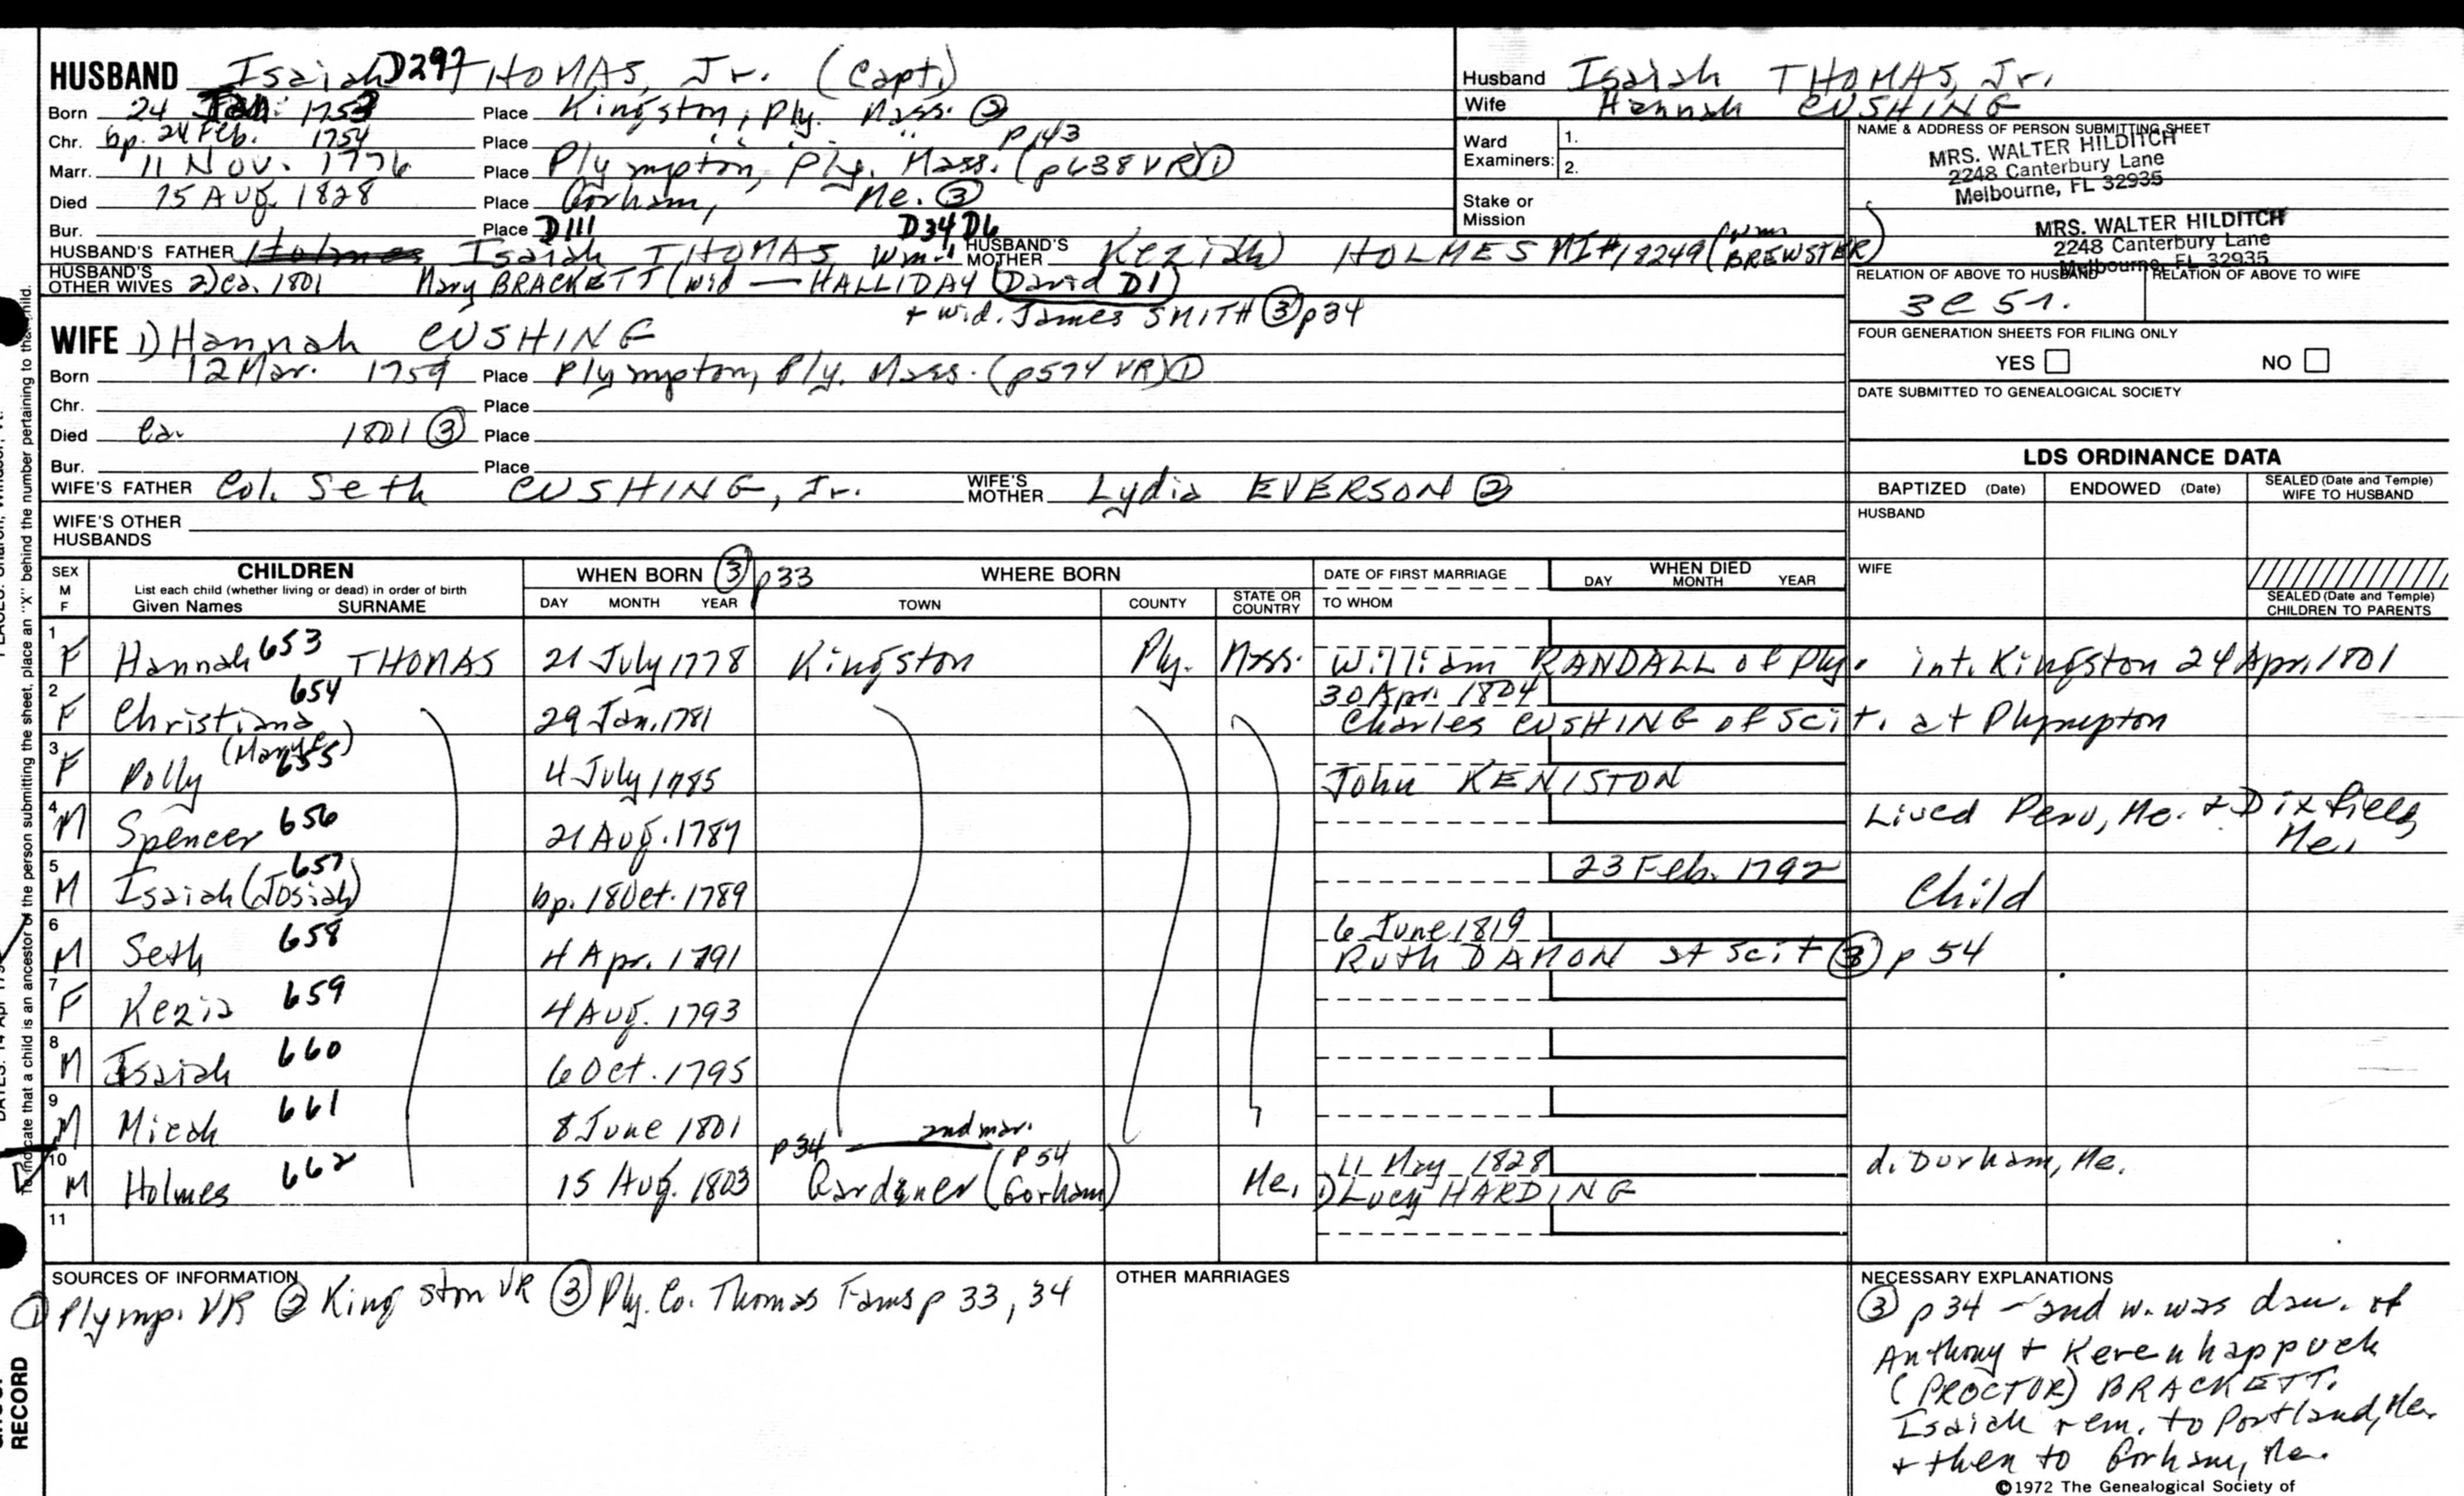 HUSBAND Isaiah D297 THOMAS, Jr. (Capt.)
Born 24 Jan. 1753 Place Kingston, Ply. Mass. ②
Chr. bp. 24 Feb. 1754 Place " " " p143
Marr. 11 Nov. 1776 Place Plympton, Ply. Mass. (p438 VR) ①
Died 15 Aug. 1828 Place Gorham, Me. ③
Bur. Place D111 D34 D6
HUSBAND'S FATHER Holmes Isaiah THOMAS Wm HUSBAND'S MOTHER Keziah HOLMES MI#18249 (BREWSTER)
HUSBAND'S OTHER WIVES 2) ca. 1801 Mary BRACKETT (wid — HALLIDAY (David D1)
+ wid. James SMITH ③ p34
WIFE 1) Hannah CUSHING
Born 12 Mar. 1759 Place Plympton, Ply. Mass. (p574 VR) ①
Chr. Place
Died Ca. 1801 ③ Place
Bur. Place
WIFE'S FATHER Col. Seth CUSHING, Jr. WIFE'S MOTHER Lydia EVERSON ②
WIFE'S OTHER HUSBANDS
Husband Isaiah THOMAS, Jr.
Wife Hannah CUSHING
Ward Examiners: 1.
2.
Stake or Mission
NAME & ADDRESS OF PERSON SUBMITTING SHEET
MRS. WALTER HILDITCH
2248 Canterbury Lane
Melbourne, FL 32935
MRS. WALTER HILDITCH
2248 Canterbury Lane
Melbourne, FL 32935
RELATION OF ABOVE TO HUSBAND RELATION OF ABOVE TO WIFE
3C 5r.
FOUR GENERATION SHEETS FOR FILING ONLY
YES NO
DATE SUBMITTED TO GENEALOGICAL SOCIETY
LDS ORDINANCE DATA
BAPTIZED (Date) ENDOWED (Date) SEALED (Date and Temple) WIFE TO HUSBAND
HUSBAND
WIFE
SEALED (Date and Temple) CHILDREN TO PARENTS
SEX M F CHILDREN List each child (whether living or dead) in order of birth Given Names SURNAME
WHEN BORN ③ p33 DAY MONTH YEAR
WHERE BORN TOWN COUNTY STATE OR COUNTRY
DATE OF FIRST MARRIAGE TO WHOM
WHEN DIED DAY MONTH YEAR
1 F Hannah 653 THOMAS 21 July 1778 Kingston Ply. Mass. William RANDALL of Ply. int. Kingston 24 Apr. 1801
2 F Christiana 654 29 Jan. 1781 30 Apr. 1804 Charles CUSHING of Scit. at Plympton
3 F Polly (Mary) 655 4 July 1785 John KENISTON
4 M Spencer 656 21 Aug. 1787 Lived Peru, Me. + Dixfield, Me.
5 M Isaiah (Josiah) 657 bp. 18 Oct. 1789 23 Feb. 1792 Child
6 M Seth 658 4 Apr. 1791 6 June 1819 Ruth DAMON at Scit ③ p 54
7 F Kezia 659 4 Aug. 1793
8 M Isaiah 660 6 Oct. 1795
9 M Micah 661 8 June 1801
2nd mar.
10 M Holmes 662 15 Aug. 1803 p34 Gardener (Gorham) p54 Me. 11 May 1828 1) Lucy HARDING d. Durham, Me.
11
SOURCES OF INFORMATION
① Plymp. VR ② Kingston VR ③ Ply. Co. Thomas Fams p 33, 34
OTHER MARRIAGES
NECESSARY EXPLANATIONS
③ p34 – 2nd w. was dau. of
Anthony + Kerenhappuck
(PROCTOR) BRACKETT.
Isaiah rem. to Portland, Me.
+ then to Gorham, Me.
©1972 The Genealogical Society of
To indicate that a child is an ancestor of the person submitting the sheet, place an "X" behind the number pertaining to that child.
RECORD